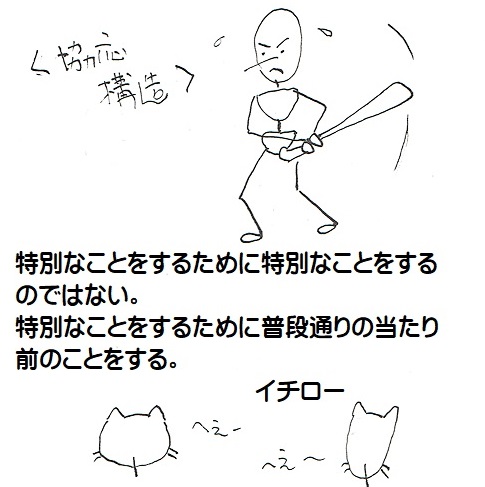 <協応
構造>
特別なことをするために特別なことをする
のではない。
特別なことをするために普段通りの当たり
前のことをする。
イチロー
へえー
へぇ〜